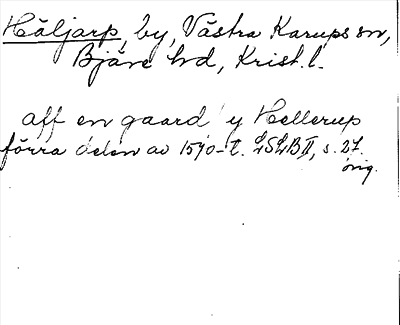 Häljarp, by, Västra Karups sn,
Bjäre hd, Krist. l.
aff en gaard y Hellerup
förra delen av 1570-t. LSLB II, s. 27.
orig.